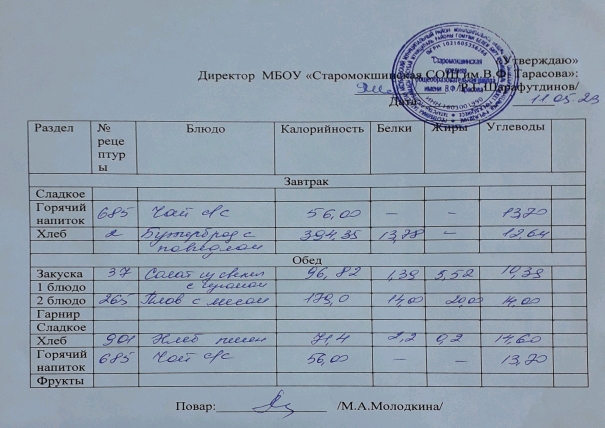 «Утверждаю»
Директор МБОУ «Старомокшинская СОШ им.В.Ф. Тарасова»:
/Р.С. Шарафутдинов/
Дата: 11.05.23
Раздел № рецептуры Блюдо Калорийность Белки Жиры Углеводы
Завтрак
Сладкое
Горячий напиток 685 Чай с/с 56,00 – – 13,70
Хлеб 2 Бутерброд с повидлом 394,35 13,78 – 12,64
Обед
Закуска 37 Салат из свеклы с 96,82 1,39 5,52 10,39
1 блюдо
2 блюдо 265 Плов с мясом 179,0 14,00 20,00 4,00
Гарнир
Сладкое
Хлеб 901 Хлеб пшен 71,4 2,2 0,2 14,60
Горячий напиток 685 Чай с/с 56,00 13,70
Фрукты
Повар: /М.А.Молодкина/